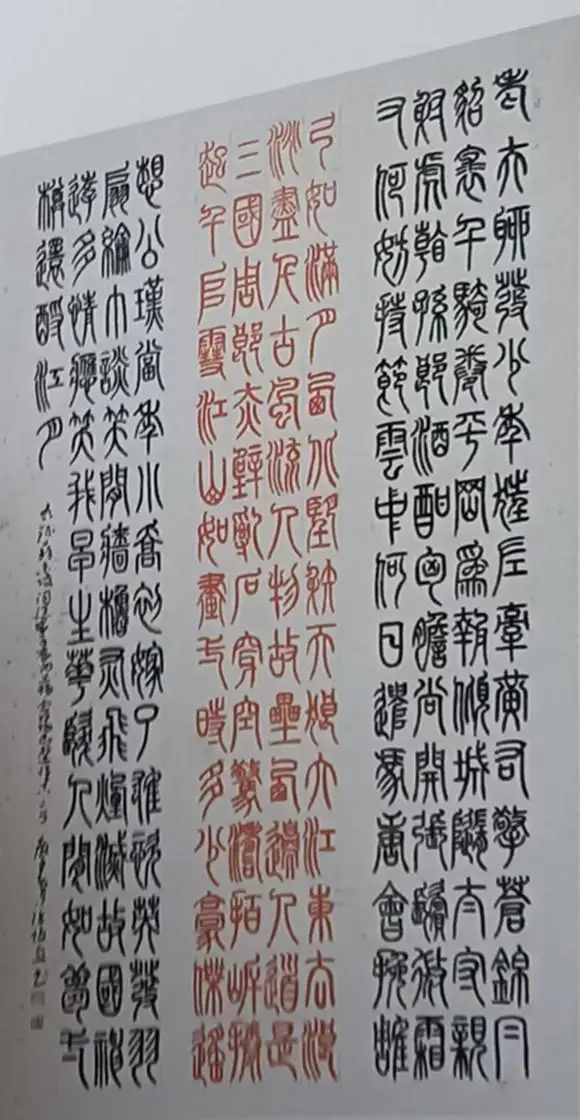 老夫聊發少年狂左牽黃右擎蒼錦冃
貂裘千騎卷平岡爲報傾城隨太守親
射虎看孫郎酒酣胸膽尚開張鬢微霜
又何妨持節雲中何日遣馮唐會挽雕
弓如滿月西北望射天狼大江東去浪
淘盡千古風流人物故壘西邊人道是
三國周郎赤壁亂石穿空驚濤拍岸捲
起千堆雪江山如畫一時多少豪傑遙
想公瑾當年小喬初嫁了雄姿英發羽
扇綸巾談笑間檣櫓灰飛煙滅故國神
遊多情應笑我早生華髮人間如夢一
樽還酹江月